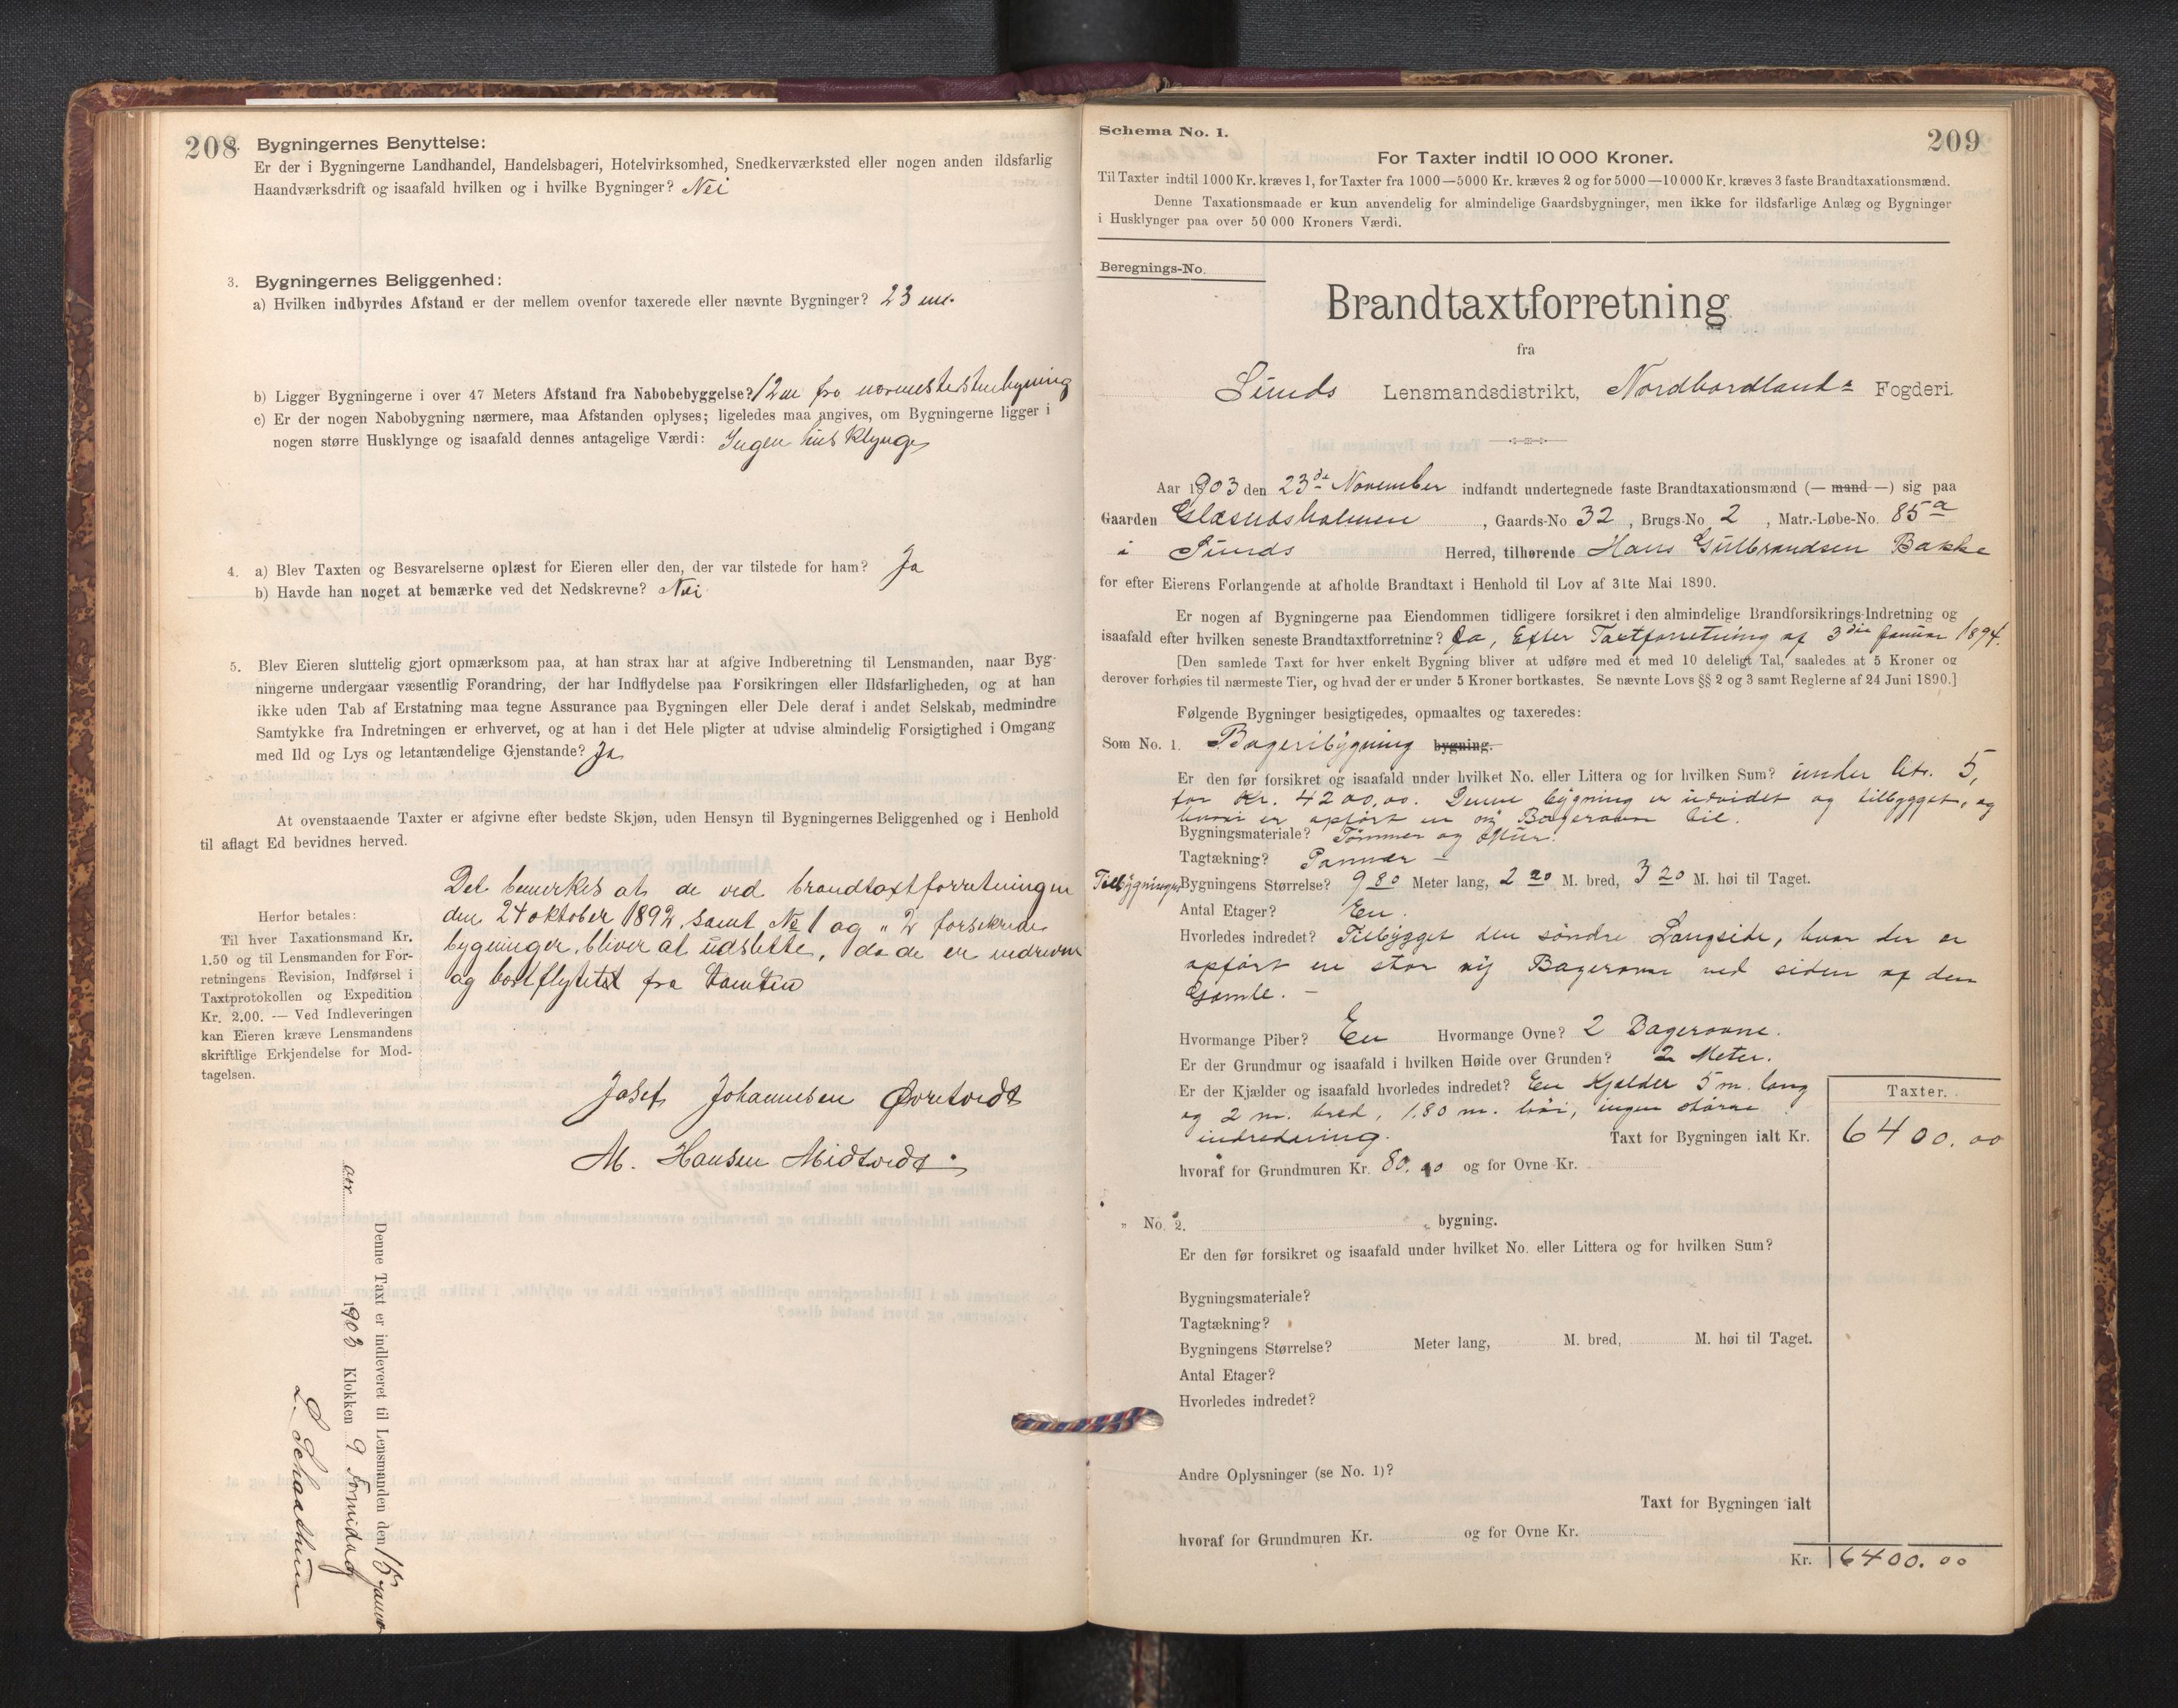 208
Bygningernes Benyttelse:
Er der i Bygningerne Landhandel, Handelsbageri, Hotelvirksomhed, Snedkerværksted eller nogen anden ildsfarlig
Haandværksdrift og isaafald hvilken og i hvilke Bygninger? Nei
3. Bygningernes Beliggenhed:
a) Hvilken indbyrdes Afstand er der mellem ovenfor taxerede eller nævnte Bygninger? 23 m.
b) Ligger Bygningerne i over 47 Meters Afstand fra Nabobebyggelse? 12 m fra
c) Er der nogen Nabobygning nærmere, maa Afstanden oplyses; ligeledes maa angives, om Bygningerne ligger i
nogen større Husklynge og isaafald dennes antagelige Værdi: Ingen hus Klynge
4. a) Blev Taxten og Besvarelserne oplæst for Eieren eller den, der var tilstede for ham? Ja
b) Havde han noget at bemærke ved det Nedskrevne? Nei
5. Blev Eieren sluttelig gjort opmærksom paa, at han strax har at afgive Indberetning til Lensmanden, naar Byg-
ningerne undergaar væsentlig Forandring, der har Indflydelse paa Forsikringen eller Ildsfarligheden, og at han
ikke uden Tab af Erstatning maa tegne Assurance paa Bygningen eller Dele deraf i andet Selskab, medmindre
Samtykke fra Indretningen er erhvervet, og at han i det Hele pligter at udvise almindelig Forsigtighed i Omgang
med Ild og Lys og letantændelige Gjenstande? Ja
At ovenstaaende Taxter er afgivne efter bedste Skjøn, uden Hensyn til Bygningernes Beliggenhed og i Henhold
til aflagt Ed bevidnes herved.
Det bemerkes at de ved brandtaxtforretningen
den 24 oktober 1892, samt No 1 og " 2 forsekrede
bygninger, bliver at udslette, da de er nedrevne
og bortflyttet fra tomten
Herfor betales:
Til hver Taxationsmand Kr.
1.50 og til Lensmanden for For-
retningens Revision, Indførsel i
Taxtprotokollen og Expedition
Kr. 2.00. — Ved Indleveringen
kan Eieren kræve Lensmandens
skriftlige Erkjendelse for Mod-
tagelsen.
Josef Johannesen Øvretvedt
M. Hansen Midtvedt
Denne Taxt er indleveret til Lensmanden den 15 janu
uar 1903 Klokken 9 Formidag
L. Schaathun
Schema No. 1.
209
For Taxter indtil 10 000 Kroner.
Til Taxter indtil 1000 Kr. kræves 1, for Taxter fra 1000—5000 Kr. kræves 2 og for 5000—10 000 Kr. kræves 3 faste Brandtaxationsmænd.
Denne Taxationsmaade er kun anvendelig for almindelige Gaardsbygninger, men ikke for ildsfarlige Anlæg og Bygninger
i Husklynger paa over 50 000 Kroners Værdi.
Beregnings-No.
Brandtaxtforretning
fra
Sunds Lensmandsdistrikt, Nordhordlands Fogderi.
Aar 1903 den 23de November indfandt undertegnede faste Brandtaxationsmænd (— mand —) sig paa
Gaarden Glæsnesholmen, Gaards-No 32, Brugs-No 2, Matr.-Løbe-No. 85a
i Sunds Herred, tilhørende Hans Gulbrandsen Bakke
for efter Eierens Forlangende at afholde Brandtaxt i Henhold til Lov af 31te Mai 1890.
Er nogen af Bygningerne paa Eiendommen tidligere forsikret i den almindelige Brandforsikrings-Indretning og
isaafald efter hvilken seneste Brandtaxtforretning? Ja, Efter Taxtforretning af 3die Januar 1894.
[Den samlede Taxt for hver enkelt Bygning bliver at udføre med et med 10 deleligt Tal, saaledes at 5 Kroner og
derover forhøies til nærmeste Tier, og hvad der er under 5 Kroner bortkastes. Se nævnte Lovs §§ 2 og 3 samt Reglerne af 24 Juni 1890.]
Følgende Bygninger besigtigedes, opmaaltes og taxeredes:
Som No. 1. Bageribygning bygning.
Er den før forsikret og isaafald under hvilket No. eller Littera og for hvilken Sum? under litr. 5,
for Kr. 4200,00. Denne bygning er udvidet og tilbygget, og
hvori er opført en ny Bagerovn til.
Bygningsmateriale? Tømmer og Mur.
Tagtækning? Panner —
Tilbygningen Bygningens Størrelse? 9 80 Meter lang, 2 20 M. bred, 3 20 M. høi til Taget.
Antal Etager? En.
Hvorledes indredet? Tilbygget den søndre Langside, hvor der er
opført en stor ny Bagerovn ved siden af den
Gamle. —
Hvormange Piber? En Hvormange Ovne? 2 Bagerovne.
Er der Grundmur og isaafald i hvilken Høide over Grunden? 2 Meter.
Er der Kjælder og isaafald hvorledes indredet? En Kjælder 5 m. lang
og 2 m. bred, 1,80 m. høi, ingen større
indredning.
Taxter.
Taxt for Bygningen ialt Kr. 6400.00
hvoraf for Grundmuren Kr. 80.00 og for Ovne Kr.
" No. 2. bygning.
Er den før forsikret og isaafald under hvilket No. eller Littera og for hvilken Sum?
Bygningsmateriale?
Tagtækning?
Bygningens Størrelse? Meter lang, M. bred, M. høi til Taget.
Antal Etager?
Hvorledes indredet?
Andre Oplysninger (se No. 1)?
Taxt for Bygningen ialt
hvoraf for Grundmuren Kr. og for Ovne Kr.
Kr. 6400.00